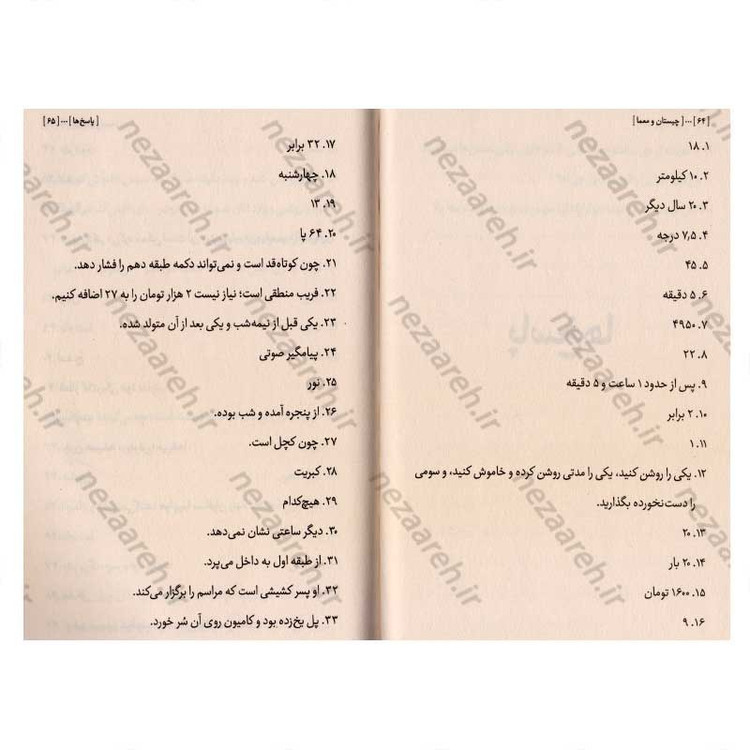 [ ۶۴ ] ... [ چیستان و معما ]
۱. ۱۸
۲. ۱۰ کیلومتر
۳. ۲۰ سال دیگر
۴. ۷,۵ درجه
۵. ۴۵
۶. ۵ دقیقه
۷. ۴۹۵۰
۸. ۲۲
۹. پس از حدود ۱ ساعت و ۵ دقیقه
۱۰. ۲ برابر
۱۱. ۱
۱۲. یکی را روشن کنید، یکی را مدتی روشن کرده و خاموش کنید، و سومی
را دست‌نخورده بگذارید.
۱۳. ۲۰
۱۴. ۲۰ بار
۱۵. ۱۶۰۰ تومان
۱۶. ۹
[ پاسخ‌ها ] ... [ ۶۵ ]
۱۷. ۳۲ برابر
۱۸. چهارشنبه
۱۹. ۱۳
۲۰. ۶۴ پا
۲۱. چون کوتاه‌قد است و نمی‌تواند دکمه طبقه دهم را فشار دهد.
۲۲. فریب منطقی است؛ نیاز نیست ۲ هزار تومان را به ۲۷ اضافه کنیم.
۲۳. یکی قبل از نیمه‌شب و یکی بعد از آن متولد شده.
۲۴. پیامگیر صوتی
۲۵. نور
۲۶. از پنجره آمده و شب بوده.
۲۷. چون کچل است.
۲۸. کبریت
۲۹. هیچ‌کدام
۳۰. دیگر ساعتی نشان نمی‌دهد.
۳۱. از طبقه اول به داخل می‌پرد.
۳۲. او پسر کشیشی است که مراسم را برگزار می‌کند.
۳۳. پل یخ‌زده بود و کامیون روی آن سُر خورد.
nezaareh.ir
nezaareh.ir
nezaareh.ir
nezaareh.ir
nezaareh.ir
nezaareh.ir